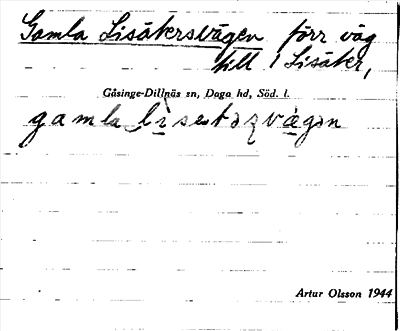 Gamla Lisäkersvägen förr väg
till 1 Lisäker,
Gåsinge-Dillnäs sn, Daga hd, Söd. l.
gamla
Artur Olsson 1944